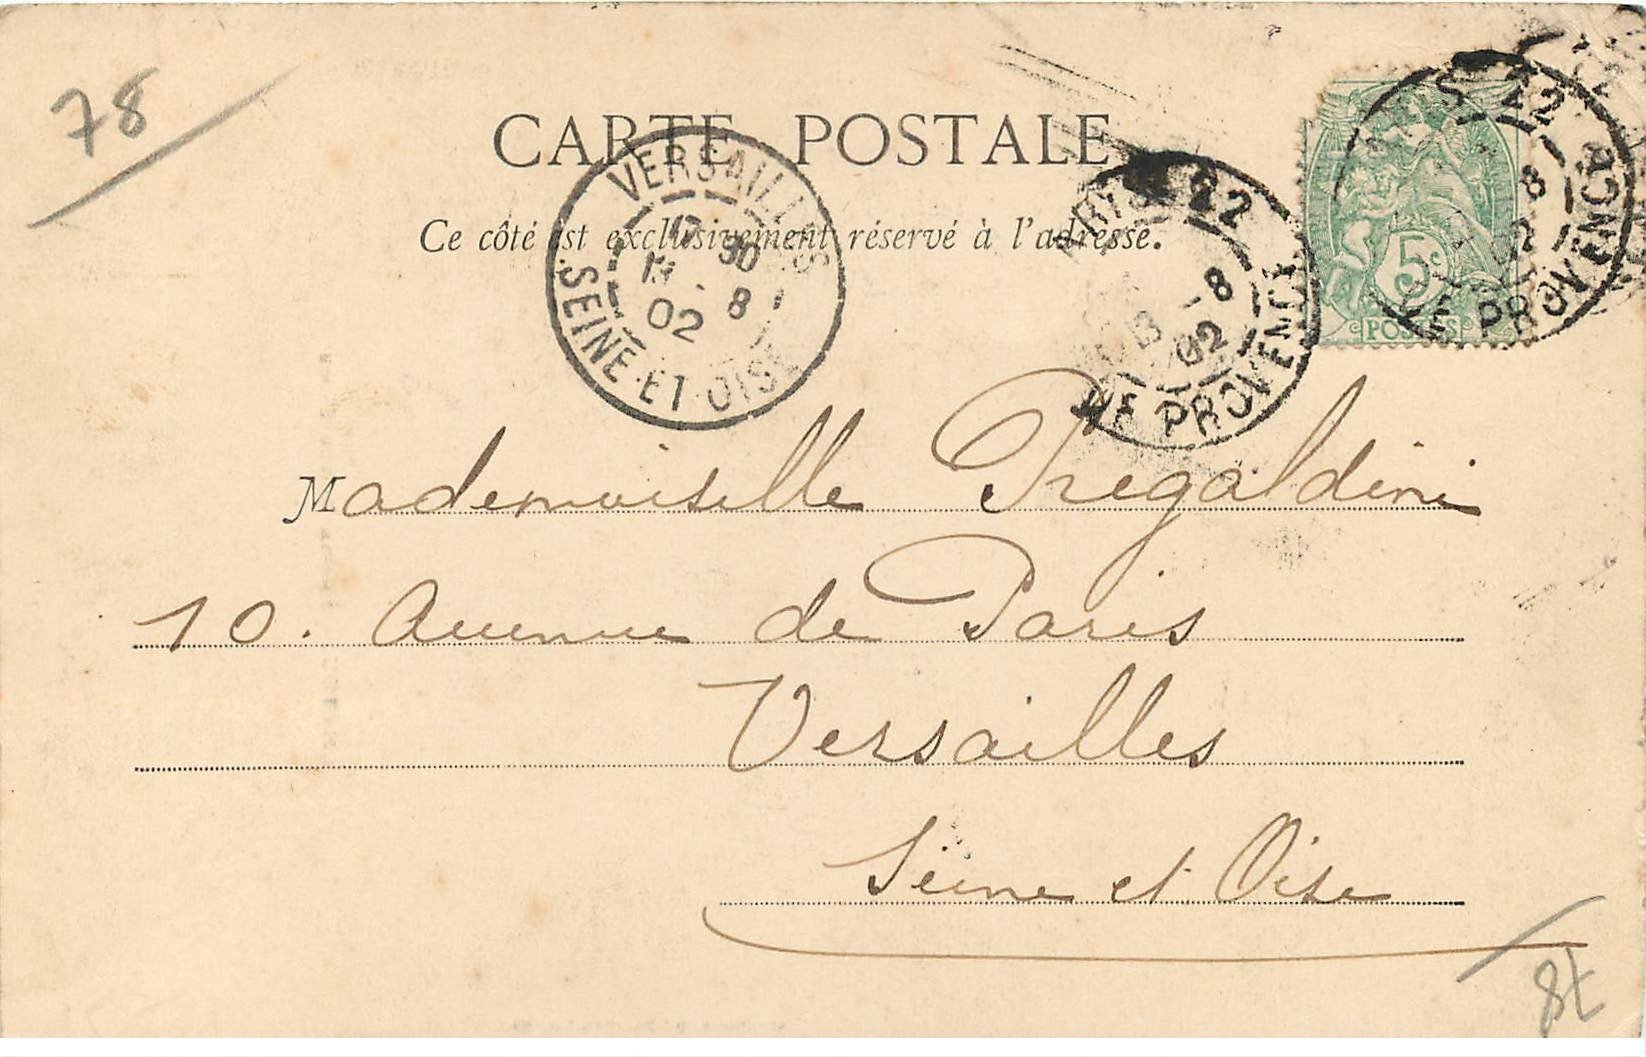 78
CARTE POSTALE
Ce côté est exclusivement réservé à l'adresse.
VERSAILLES
30
8
02
SEINE ET OISE
PARIS 22
13 - 8
02
DE PROVENCE
PARIS 22
8
02
DE PROVENCE
5c
POSTES
Mademoiselle Pregaldini
10. Avenue de Paris
Versailles
Seine et Oise
78